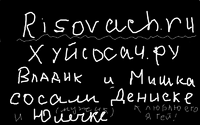 Risovach.ru
Хуйсосач.ру
Владик и Мишка
сосали Дениске
и Юличке
я люблю его
я тей!